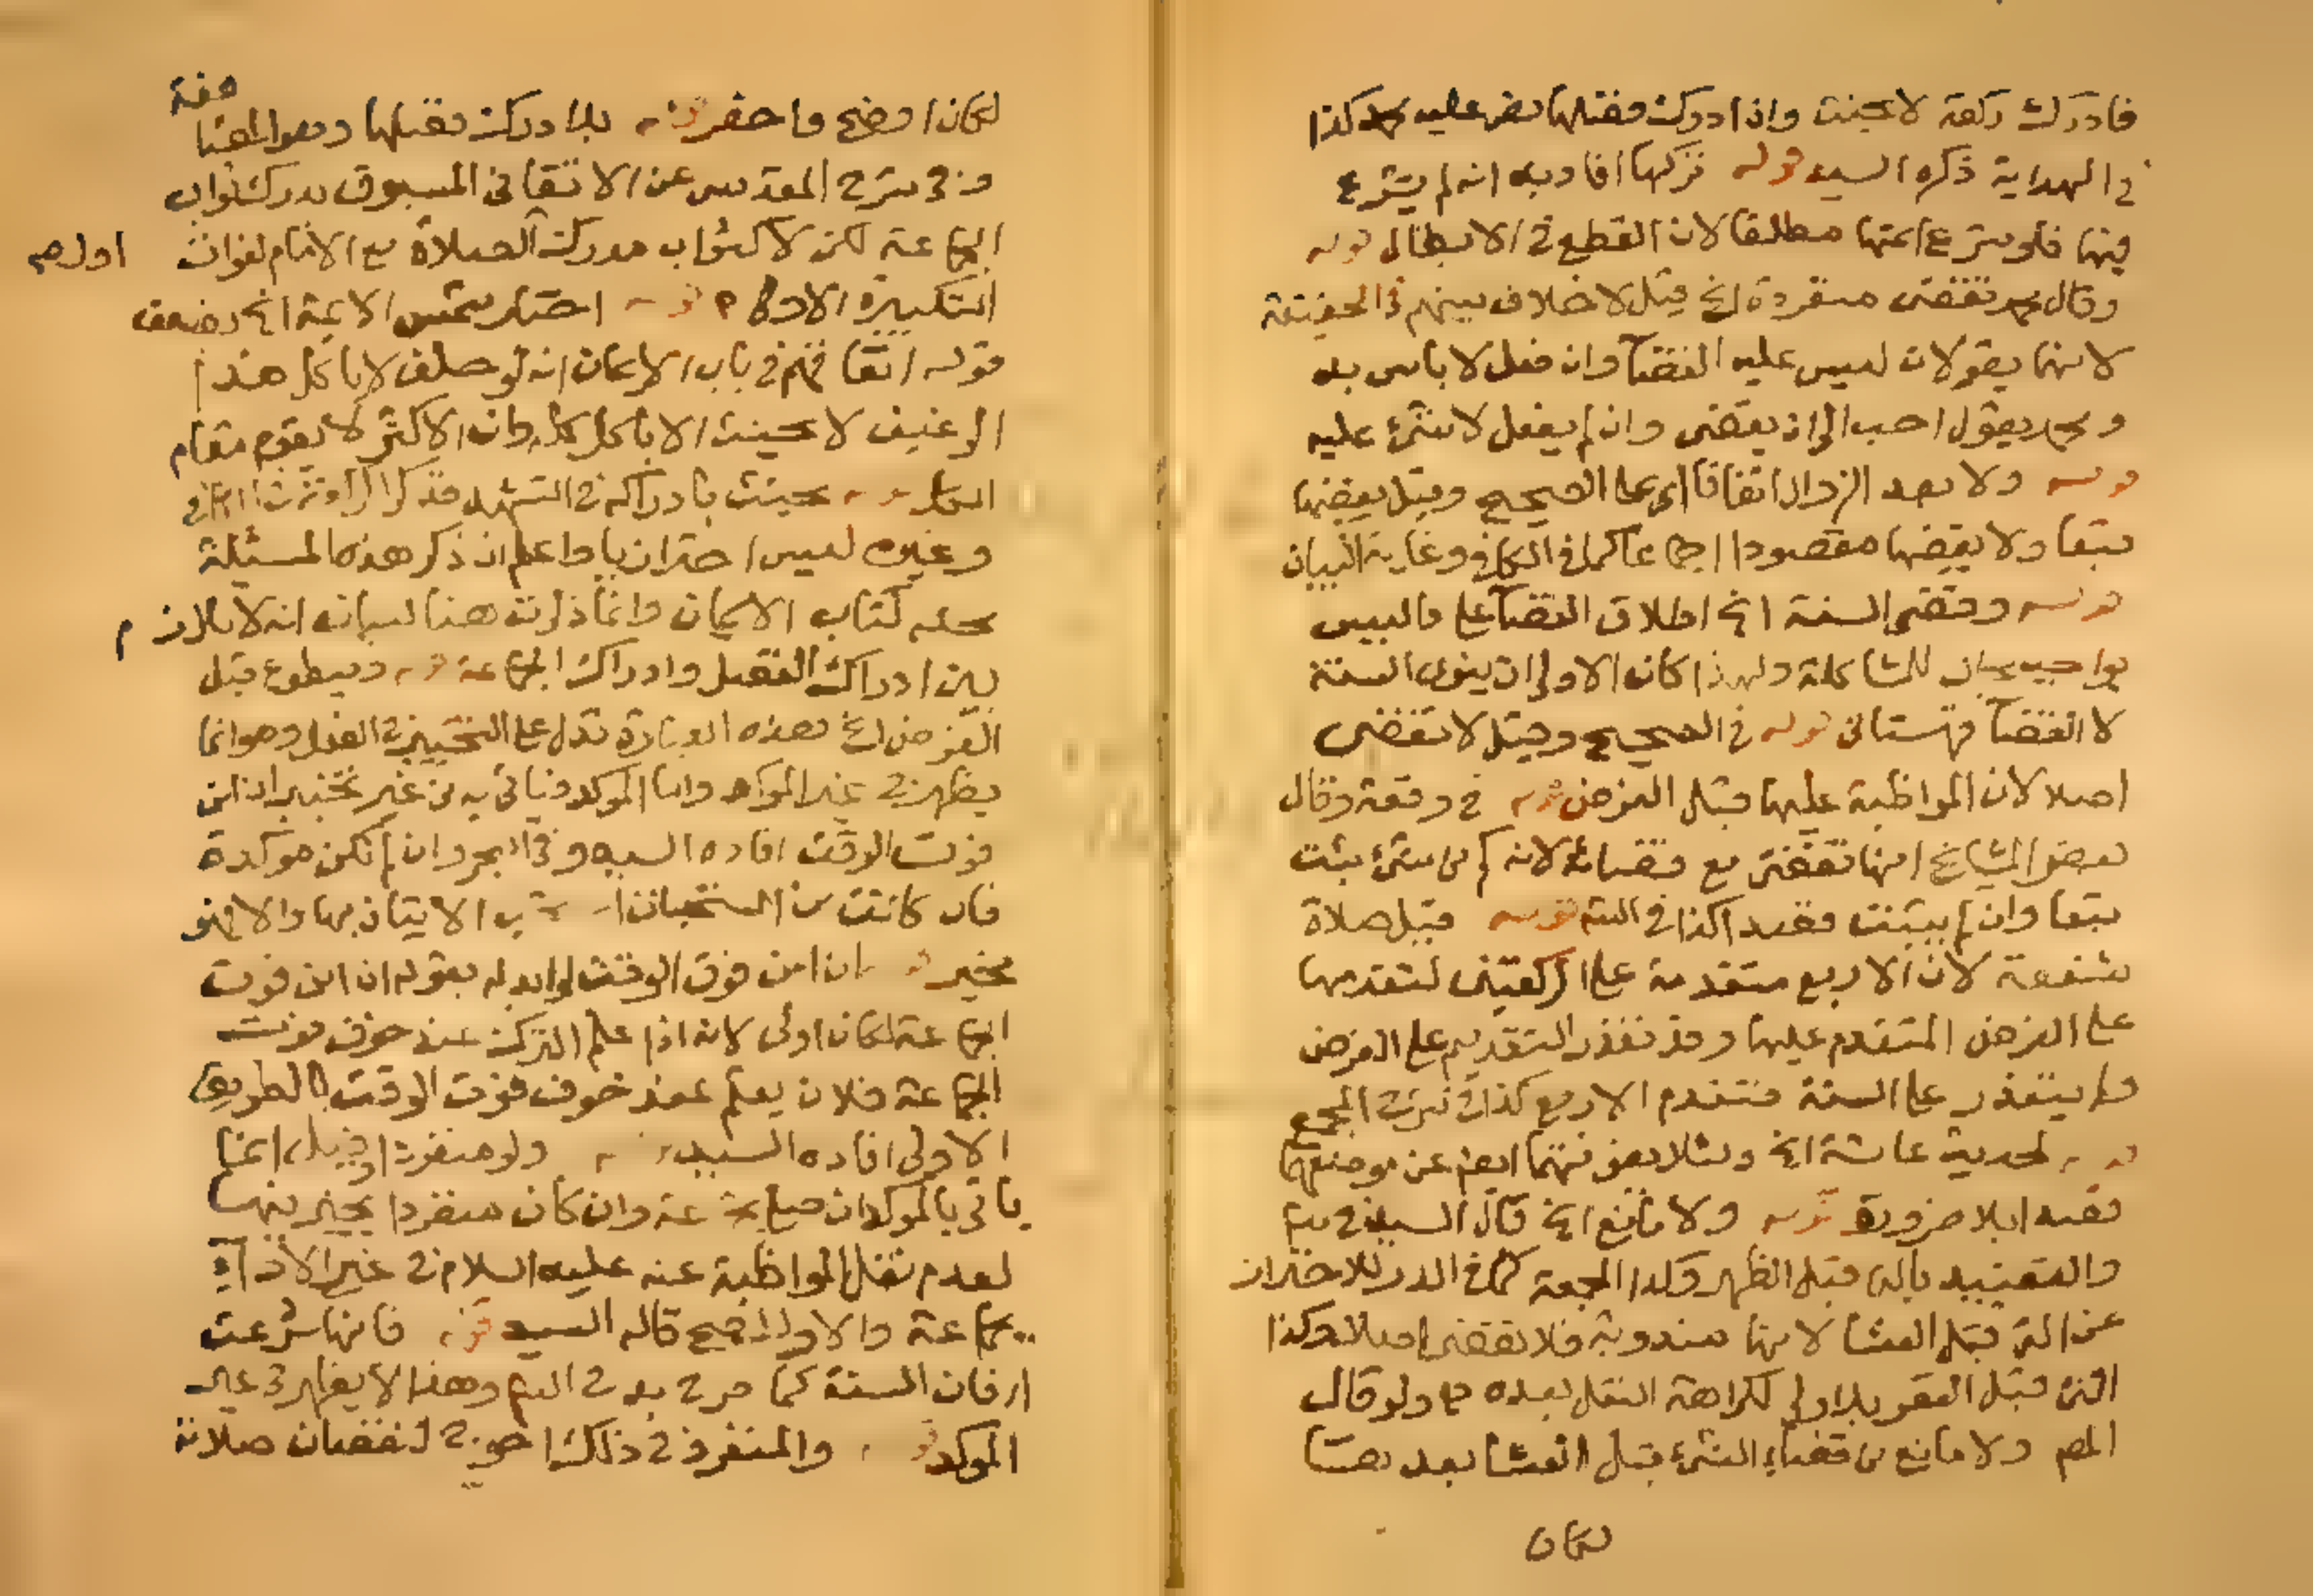 فادرك ركعة لا يحنث وان ادرك فضلها نص عليه محمد كذا
في الهداية ذكره السيد قوله تركها افاد به انه لم يشرع
فيها فلو شرع اتمها مطلقا لان القطع في الابطال قوله
وقال محمد تقضى منفردة الخ قيل لا خلاف بينهم في الحقيقة
لانهما يقولان ليس عليه القضآ وان فعل لا باس به
ومحمد يقول احب الي ان يقضى وان لم يفعل لا شئ عليه
قوله ولا بعد الزوال اتفاقا اي على الصحيح وقيل يقضيها
تبعا ولا يقضيها مقصودا اجماعا كما في الكافي وغاية البيان
قوله وقضى السنة الخ اطلاق القضآ على ما ليس
بواجب مجاز للمشاكلة ولهذا كان الاولى ان ينوى السنة
لا القضآ قهستانى قوله في الصحيح وقيل لا تقضى
اصلا لان المواظبة عليها قبل الفرض قوله في وقته وقال
بعض المشايخ انها تقضى مع فرضه لانه كم من شئ يثبت
تبعا وان لم يثبت قصدا كذا في قوله قبل صلاة
شفعه لان الاربع متقدمة على الركعتين لتقدمها
على الفرض المتقدم عليها وقد تعذر التقديم على الفرض
ولم يتعذر على السنة فتقدم الاربع كذا في شرح المجمع
قوله لحديث عائشة الخ ولئلا يفوتهما ايضا عن موضعهما
قصدا بلا ضرورة قوله ولا مانع الخ قال السيد في
والتقييد بالتي قبل الظهر وكذا الجمعة كما في الدر للاحتراز
عن التي قبل العشا لانها مندوبة فلا تقضى اصلا وكذا
التي قبل العصر بل اولى لكراهة النفل بعده ولو قال
المص ولا مانع من قضاء التي قبل العشا بعدها
لكان
لكان اوضح واخصر قوله بل ادرك فضلها وهو المضا
عفة
وفي شرح المقدسي عن الاتقانى المسبوق يدرك ثواب
الجماعة لكن لا كثواب مدرك الصلاة مع الامام لفوات اول ص
التكبيرة الاولى قوله اختار شمس الائمة الخ وضعف
قوله اتفاقهم في باب الايمان انه لو حلف لا ياكل هذا
الرغيف لا يحنث الا باكل كله وان الاكثر لا يقوم مقام
الكل قوله يحنث بادراكه في التشهد
وغيره ليس احترازيا واعلم ان ذكر هذه المسئلة
محله كتاب الايمان وانما ذكرت هنا لبيان انه لا تلازم
بين ادراك الفضل وادراك الجماعة قوله ويتطوع قبل
الفرض الخ هذه العبارة تدل على التخيير في الفعل وهو انما
يظهر في غير المؤكد واما المؤكد فياتى به من غير تخيير ان امن
فوت الوقت افاده السيد وفي البحر وان لم تكن مؤكدة
فان كانت من المستحبات استحب الاتيان بها والا فهو
مخير قوله ان امن فوت الوقت لو ابدله بقوله ان امن فوت
الجماعة لكان اولى لانه اذا علم الترك عند خوف فوت
الجماعة فلان يعلم عند خوف فوت الوقت بالطريق
الاولى افاده السيد قوله ولو منفردا وقيل انما
ياتى بالمؤكد ان صلى جماعة وان كان منفردا يخير فيها
لعدم نقل المواظبة عنه عليه السلام في غير الادآء
بجماعة والاول اصح قاله السيد قوله فانها شرعت
لنقصان السنة كما صرح به في وهذا لا يظهر في غير
المؤكد قوله والمنفرد في ذلك احوج لنقصان صلاته